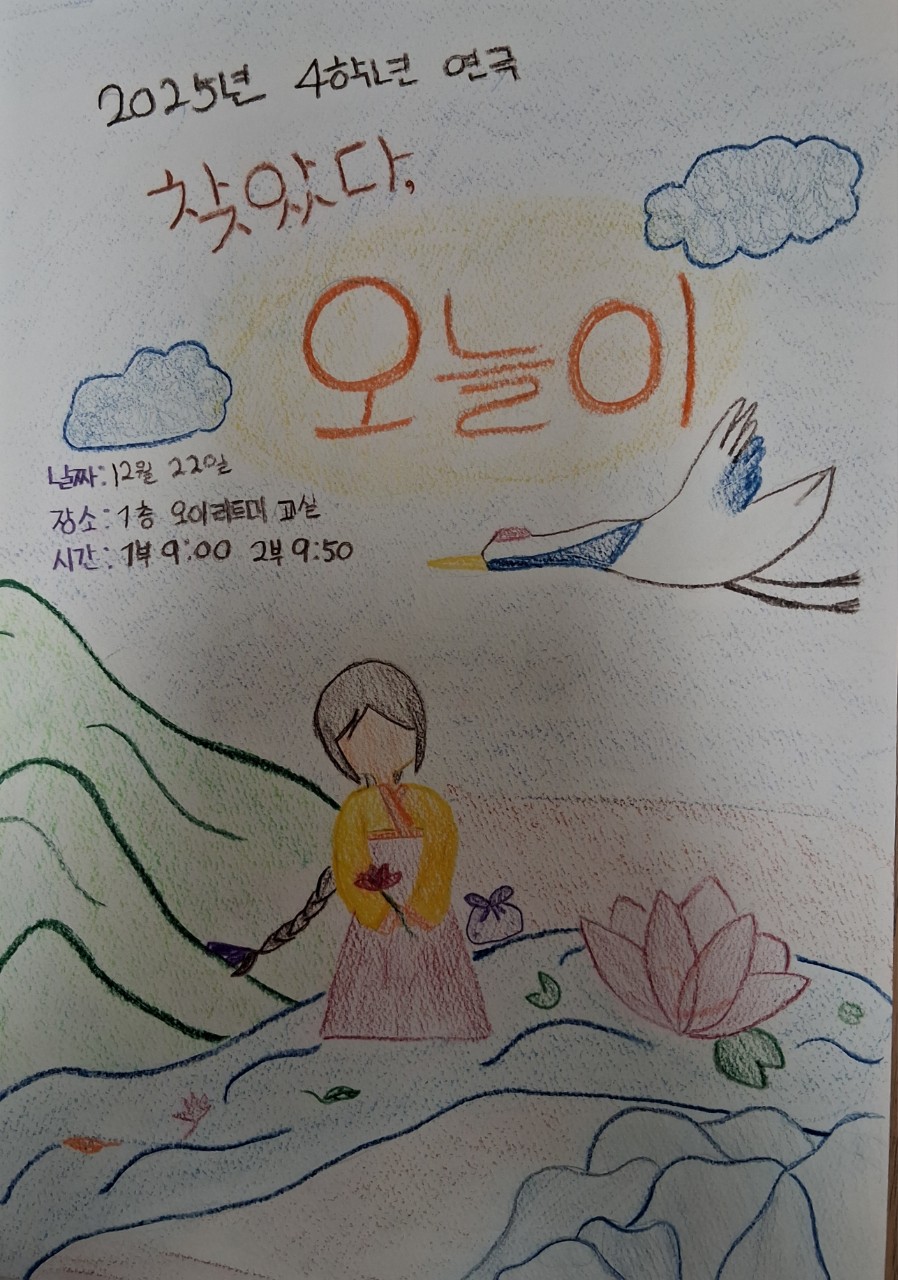 2025년 4학년 연극
찾았다,
오늘이
날짜: 12월 22일
장소: 1층 오이리트미 교실
시간: 1부 9:00 2부 9:50